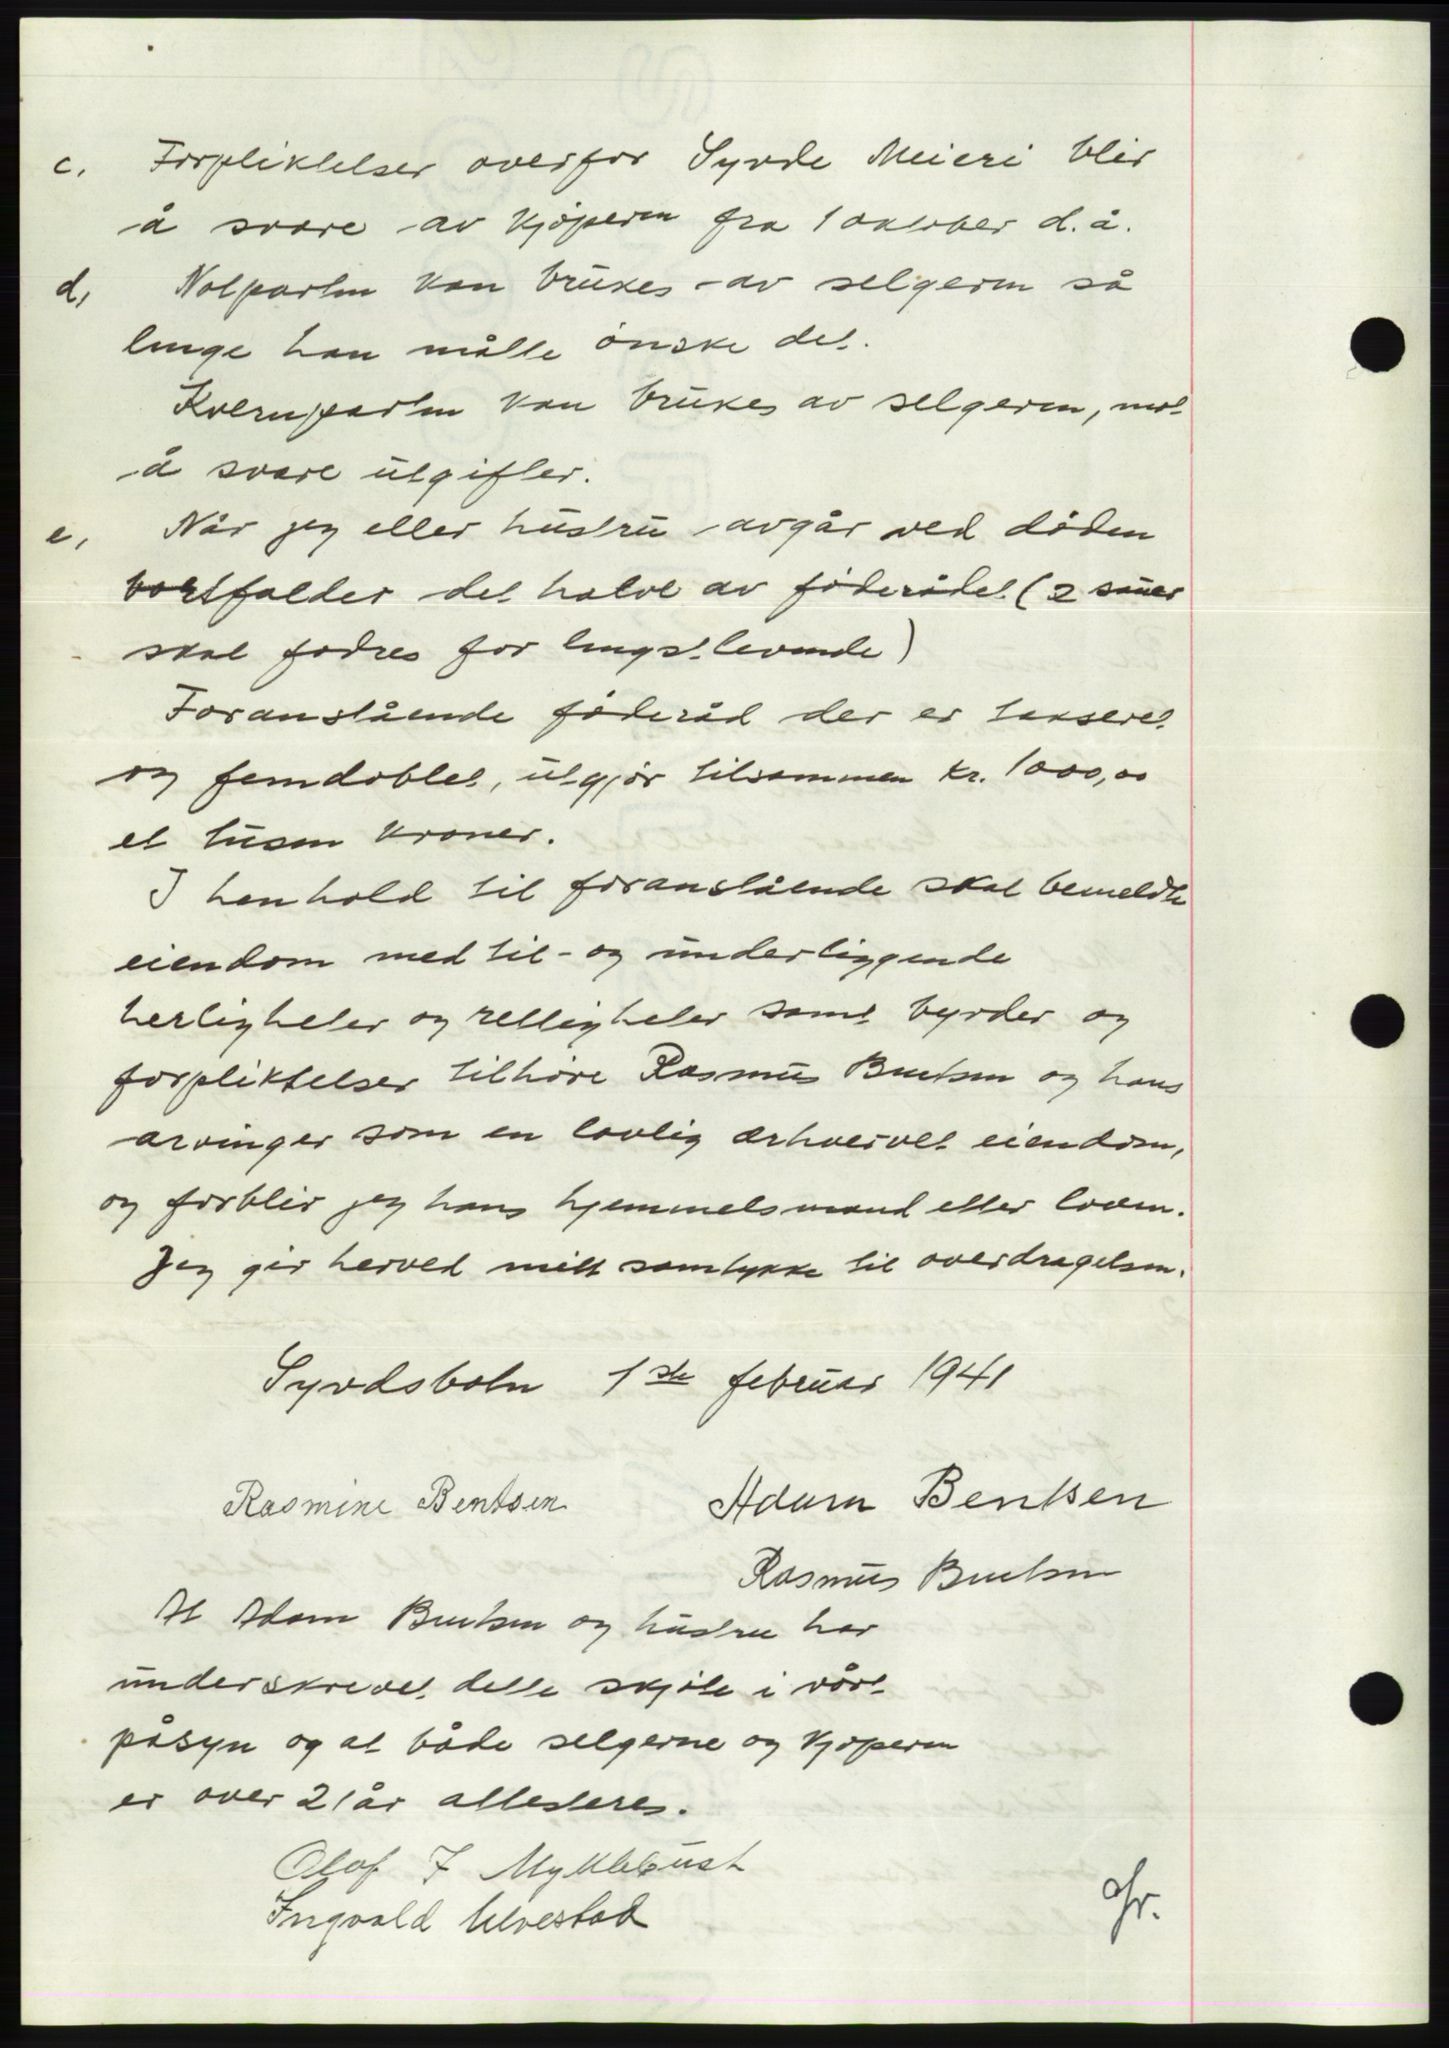 c. Forpliktelser overfor Syvde Meieri blir
å svare av kjøperen fra 1 oktober d. å.
d, Notparten kan brukes av selgeren så
lenge han måtte ønske det.
Kvernparten kan brukes av selgeren, mot
å svare utgifter.
e, Når jeg eller hustru avgår ved døden
bortfalder det halve av føderådet (2 sauer
skal fødres for lengstlevende)
Foranstående føderåd der er taksert
og femdoblet, utgjør tilsammen kr. 1000,00
et tusen kroner.
I henhold til foranstående skal bemeldte
eiendom med til- og underliggende
herligheter og rettigheter samt byrder og
forpliktelser tilhøre Rasmus Bentsen og hans
arvinger som en lovlig erhvervet eiendom,
og forblir jeg hans hjemmelsmand etter loven.
Jeg gir herved mitt samtykke til overdragelsen.
Syvdsbotn 1ste februar 1941
Rasmine Bentsen Adam Bentsen
Rasmus Bentsen
At Adam Bentsen og hustru har
underskrevet dette skjøte i vårt
påsyn og at både selgerne og kjøperen
er over 21 år attesteres.
Olaf J Myklebust
Ingvald Ulvestad